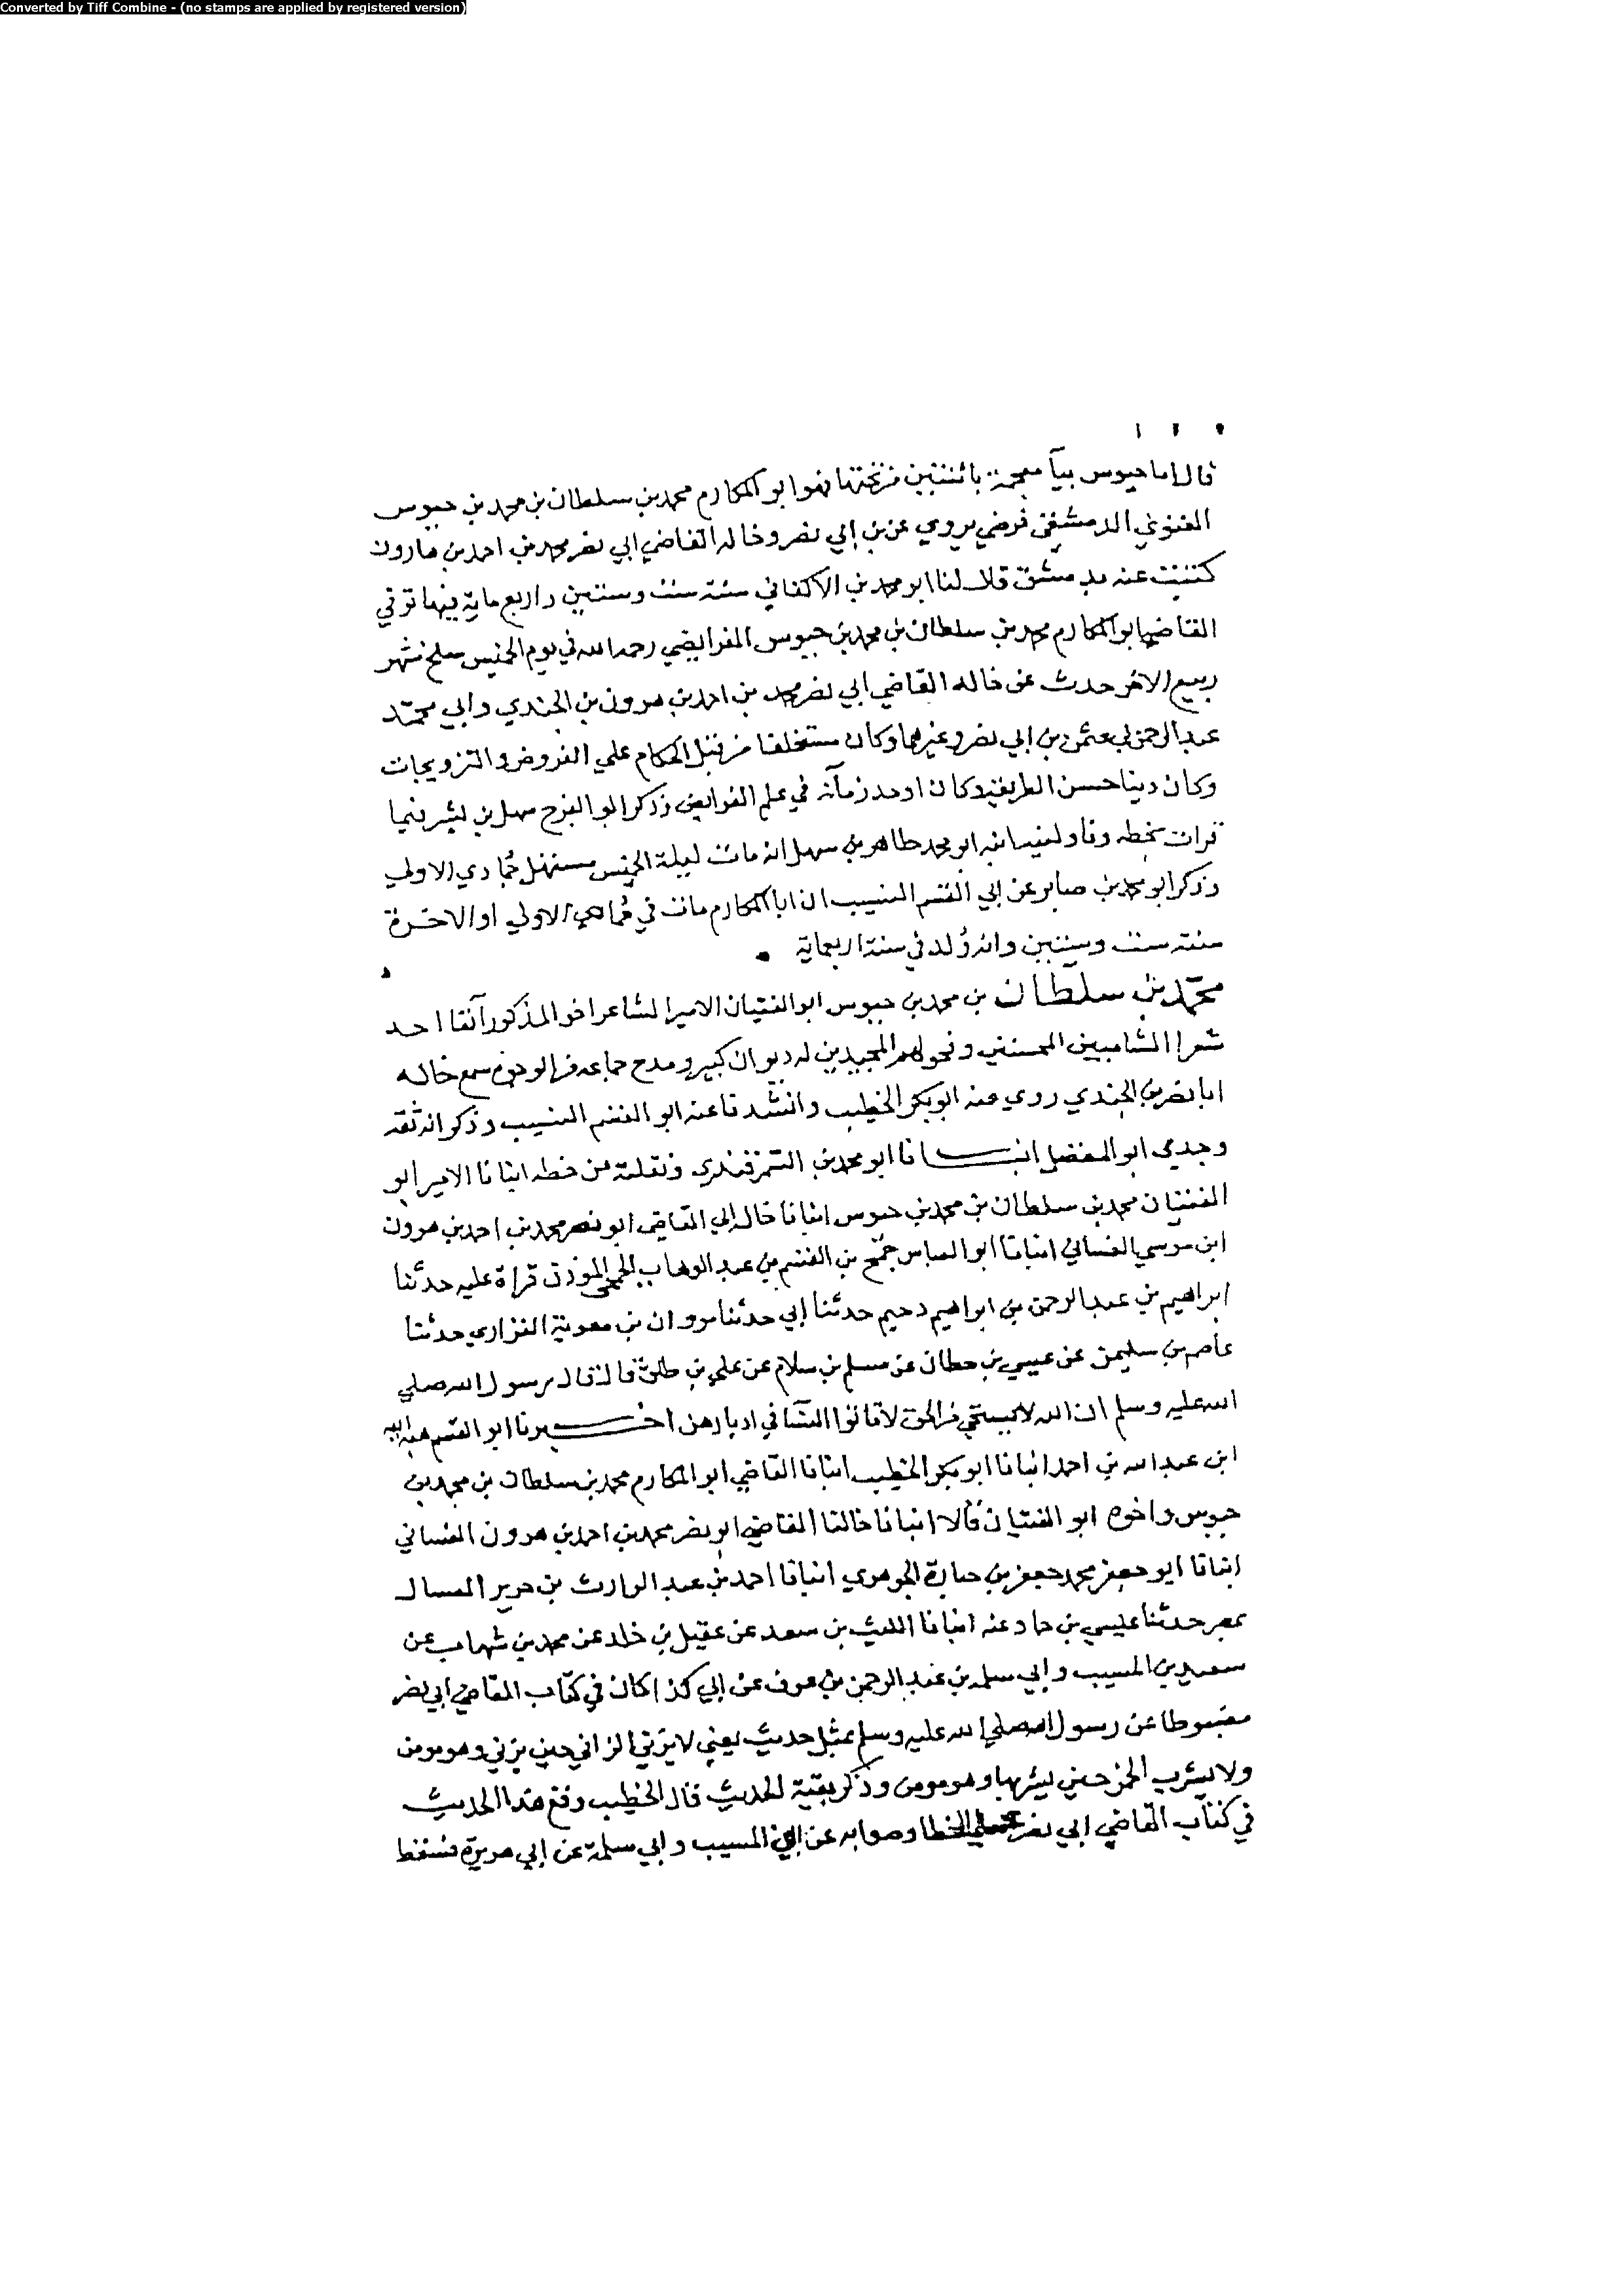 Converted by Tiff Combine - (no stamps are applied by registered version)
قال اما حيوس بيآ معجمة باثنتين من تحتها فهو ابو المكارم محمد بن سلطان بن محمد بن حيوس
الغنوي الدمشقي فرضي يروي عن بن ابي نصر وخاله القاضي ابي نصر محمد بن احمد بن هارون
كتبت عنه بدمشق قال لنا ابو محمد بن الاكفاني سنة ست وستين واربع ماية فيها توفي
القاضي ابو المكارم محمد بن سلطان بن محمد بن حيوس الفرايضي رحمه الله في يوم الخميس سلخ شهر
ربيع الاخر حدث عن خاله القاضي ابي نصر محمد بن احمد بن هرون بن الجندي وابي محمّد
عبد الرحمن بن عثمن بن ابي نصر وغيرهما وكان مستخلفا من قبل الحكام علي الفروض والتزويجات
وكان دينا حسن الطريقة وكان اوحد زمآنه في علم الفرايض وذكر ابو الفرج سهل بن بشر فيما
قرات بخطه وناولنيه ابنه ابو محمد طاهر بن سهل انه مات ليلة الخميس مستهل جُمادي الاولي
وذكر ابو محمد بن صابر عن ابي القسم النسيب ان ابا المكارم مات في جُمادي الاولي او الاخرة
سنة ست وستين وانه وُلد في سنة اربعماية
محمّد بن سلطان بن محمد بن حيوس ابو الفتيان الامير الشاعر اخو المذكور آنفا احد
شعرا الشاميين المحسنين وفحولهم المجيدين له ديوان كبير ومدح جماعه من الوجوه سمع خاله
ابا نصر بن الجندي روي عنه ابو بكر الخطيب وانشدنا عنه ابو القسم النسيب وذكر انه ثقة
وجدي ابو المفضل انبـــانا ابو محمد بن السّمرقندي ونقلته من خطه انبانا الامير ابو
الفتيان محمد بن سلطان بن محمد بن حيوس انبانا خالي القاضي ابو نصر محمد بن احمد بن هرون
ابن موسي الغساني انبانا ابو العباس جُمَح بن القسم بن عبد الوهاب الجمحي الموذن قراة عليه حدثنا
ابراهيم بن عبد الرحمن بن ابراهيم دحيم حدثنا ابي حدثنا مروان بن معوية الفزاري حدثنا
عاصم بن سليمن عن عيسي بن حطان عن مسلم بن سلام عن علي بن طلق قال قال رسول الله صلي
الله عليه وسلم ان الله لا يستحي من الحق لا تاتوا النسآ في ادبارهن اخـــبرنا ابو القسم هبة الله
ابن عبد الله بن احمد انبانا ابو بكر الخطيب انبانا القاضي ابو المكارم محمد بن سلطان بن محمد بن
حيوس واخوه ابو الفتيان قالا انبانا خالنا القاضي ابو نصر محمد بن احمد بن هرون الغساني
انبانا ابو جعفر محمد جعفر بن الجوهري انبانا احمد بن عبد الوارث بن جرير العسال
بمصر حدثنا عيسي بن حماد عنه انبانا الليث بن سعد عن عقيل بن خلد عن محمد بن شهاب عن
سعيد بن المسيب وابي سلمه بن عبد الرحمن بن عوف عن ابي كذا كان في كتاب القاضي ابي نصر
مضبوطا عن رسول الله صلي الله عليه وسلم بمثل حديث يعني لا يزني الزاني حين يزني وهو مومن
ولا يشرب الخمر حين يشربها وهو مومن وذكر بقية الحديث قال الخطيب وقع هذا الحديث
في كتاب القاضي ابي نصر علي الخطا وصوابه عن ابن المسيب وابي سلمة عن ابي هريرة فسقط